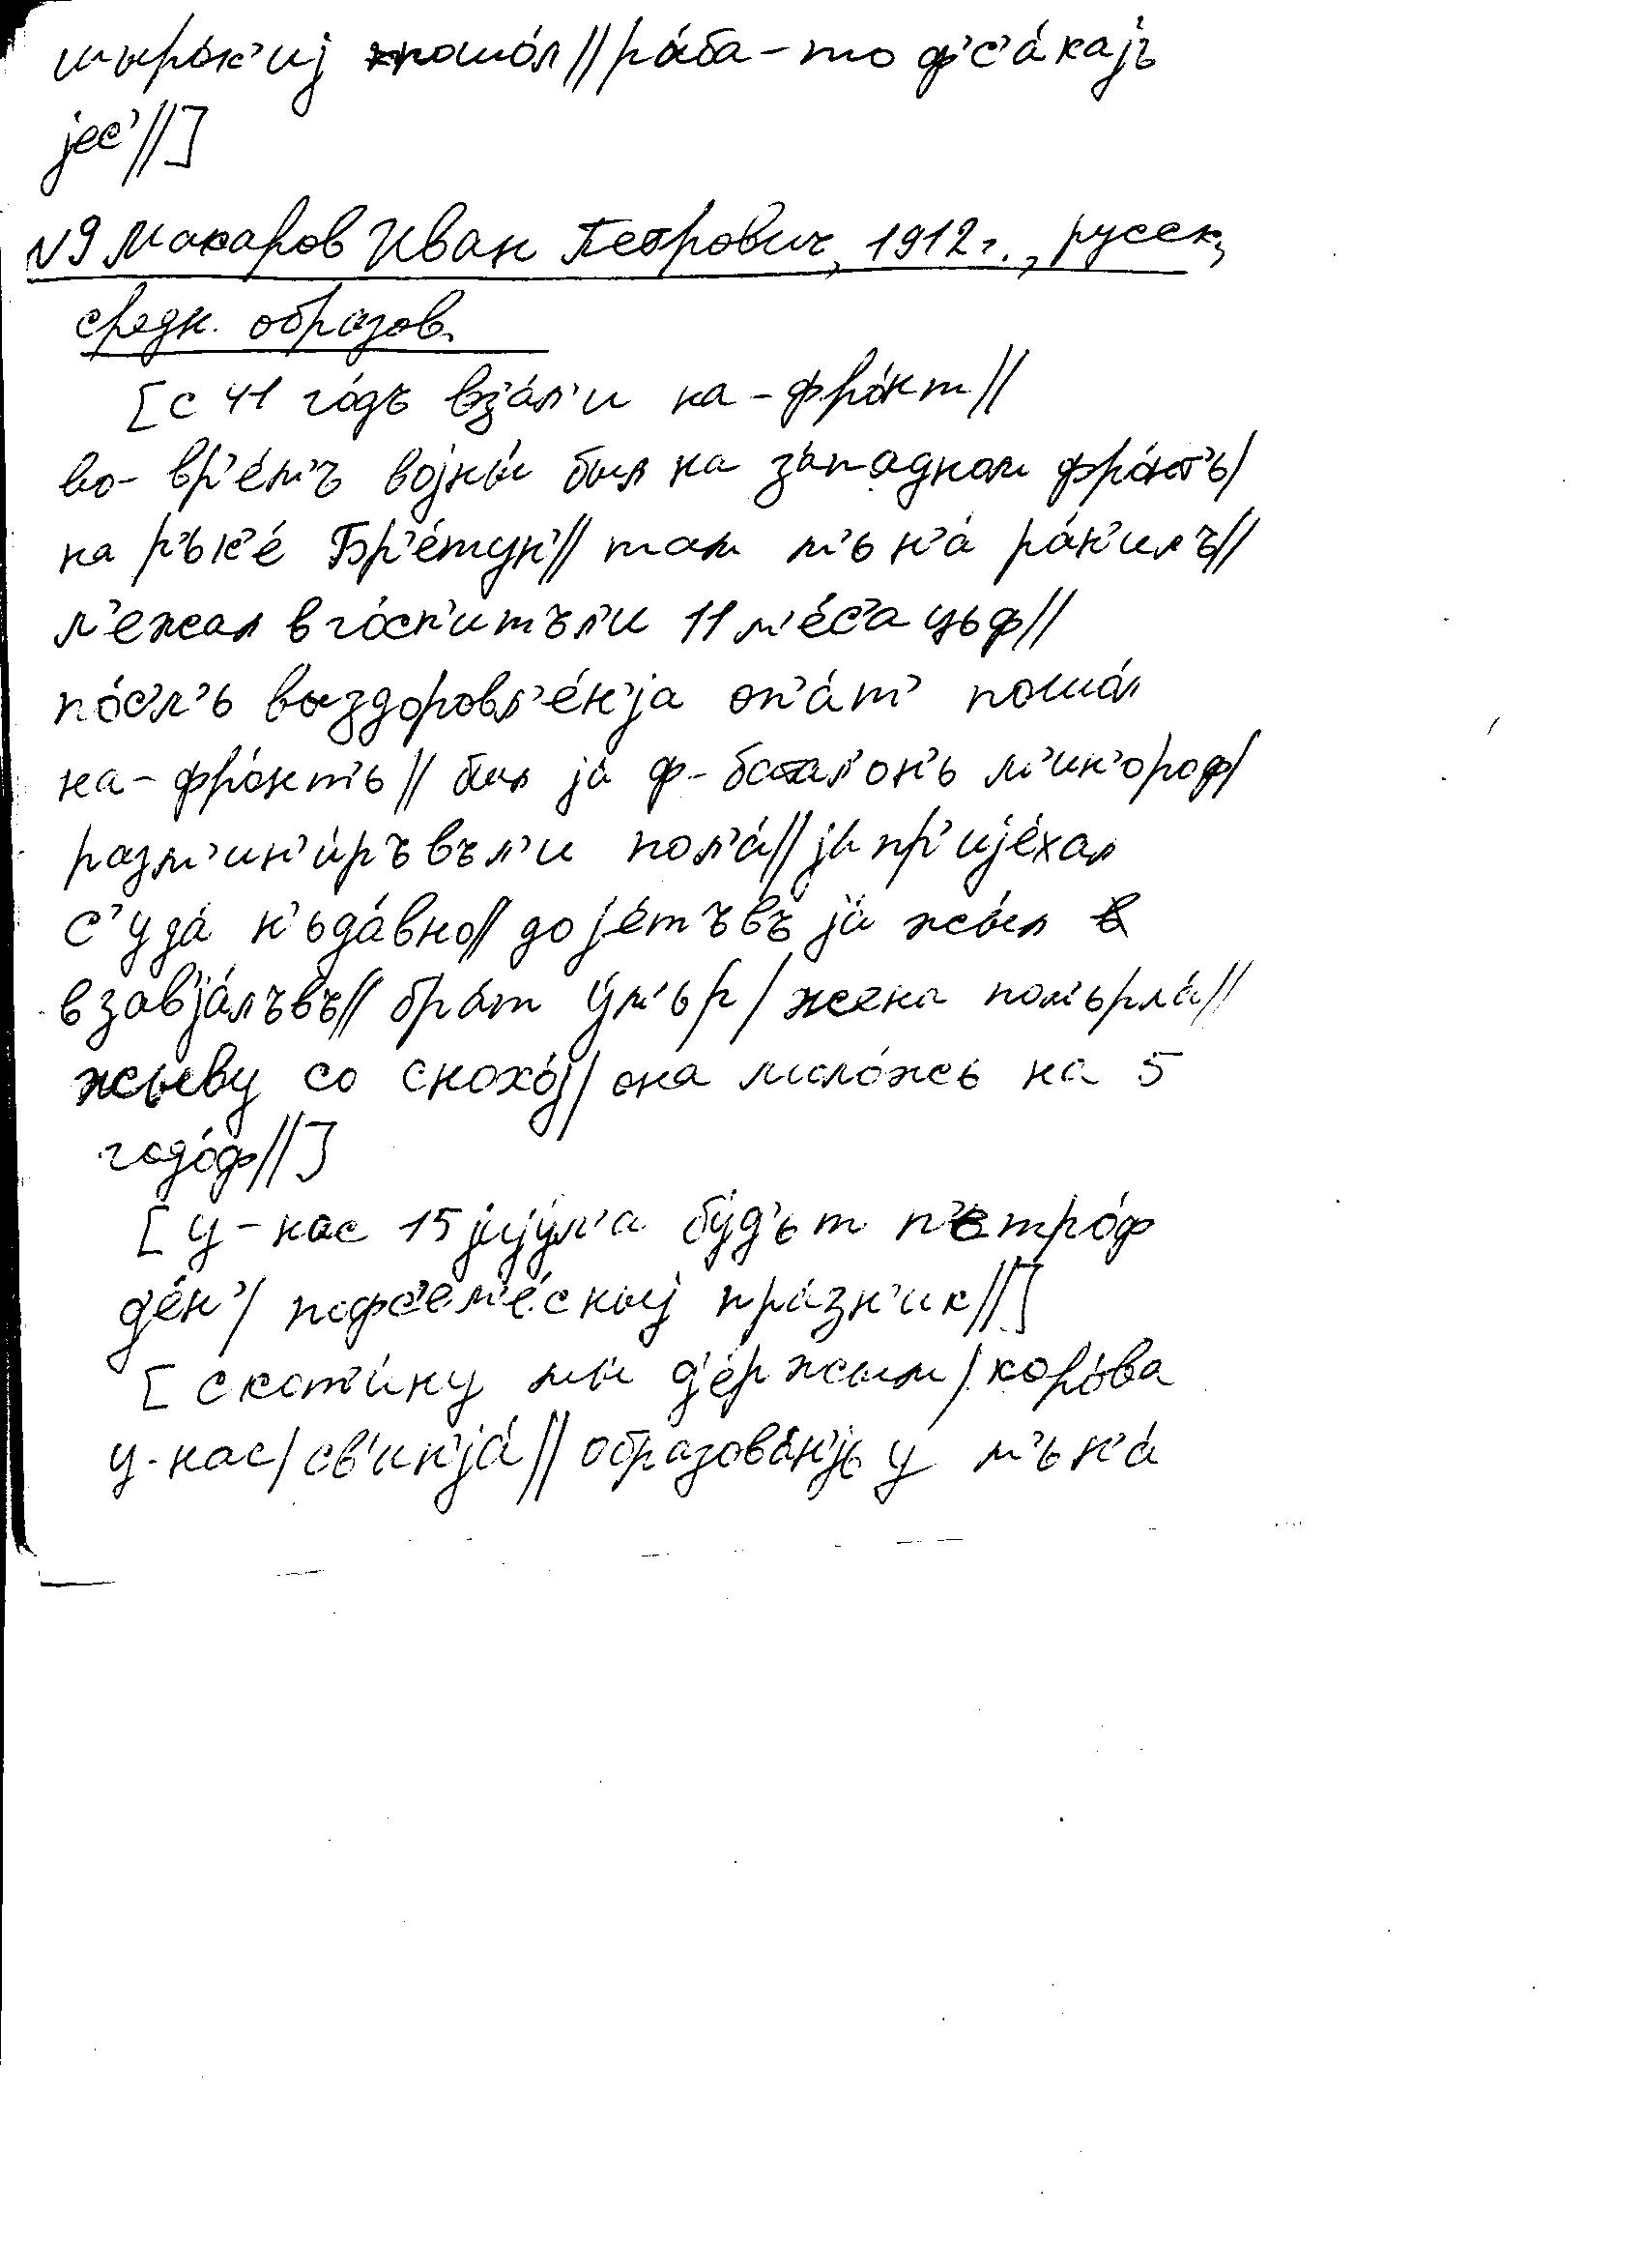 шыро́к'иј пошо́л // ры́ба-то ф'с'а́каjъ
јес' // ]
№9 Макаров Иван Петрович, 1912 г., русск,
средн. образов.
[ с 41 го́дъ вз'а́л'и на-фро́нт //
во-вр'е́м'ъ војны́ был на за́падном фро́нт'ь /
на р'ьк'е́ Бр'е́тун' // там м'ьн'а́ ра́н'илъ //
л'ежал в го́сп'итъл'и 11 м'е́с'ацьф //
по́сл'ь выздоровл'е́н'jа оп'а́т' пошо́л
на-фро́нт'ь // был ја́ ф-батал'он'ь м'ин'ороф /
разм'ин'и́ръвъл'и пол'а́ // ја́ пр'ијéхал
с'уда́ н'ьда́вно // до jе́тъвъ ја́ жы́л
в зав'jа́лъвъ // бра́т у́м'ьр / жена пом'ьрла́ //
жыву со снохо́ј / она моло́жь на 5
годо́ф // ]
[ у-нас 15 јију́л'а бу́д'ьт п'етро́ф
д'е́н' / пофс'ем'е́скыј пра́зн'ик // ]
[ скот'и́ну мы́ д'е́ржым / коро́ва
у-нас / св'ин'jа́ // образова́н'jь у м'ьн'а́